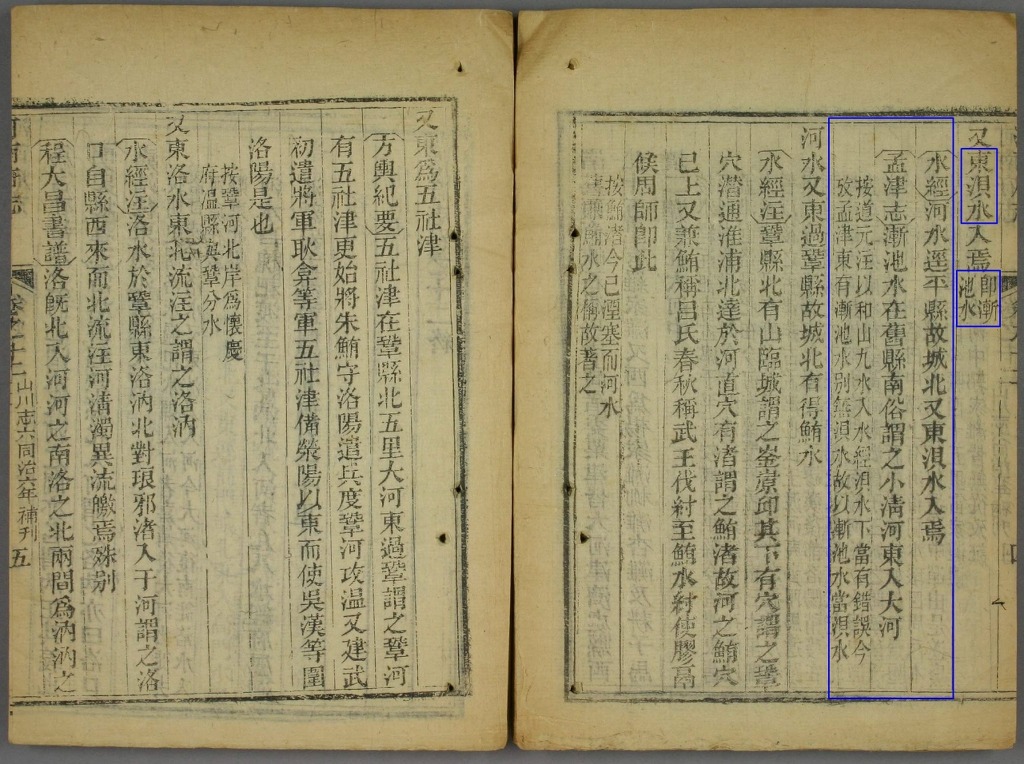 又東湨水入焉即漸池水
水經河水逕平縣故城北又東湨水入焉
孟津志漸池水在舊縣南俗謂之小清河東入大河
按道元注以和山九水入水經湨水下當有錯誤今
攷孟津東有漸池水別無湨水故以漸池水當湨水
河水又東過鞏縣故城北有得鮪水
水經注鞏縣北有山臨城謂之崟崈邱其下有穴謂之鞏
穴潜通淮浦北達於河直穴有渚謂之鮪渚故河之鮪穴
已上又兼鮪稱呂氏春秋稱武王伐紂至鮪水紂使膠鬲
候周師即此
按鮪渚今已湮塞而河水
鮪水之稱故著之
又東爲五社津
方輿紀要五社津在鞏縣北五里大河東過鞏謂之鞏河
有五社津更始將朱鮪守洛陽遣兵度鞏河攻温又建武
初遣將軍耿弇等軍五社津備滎陽以東而使吳漢等圍
洛陽是也
按鞏河北岸爲懷慶
府温縣與鞏分水
又東洛水東北流注之謂之洛汭
水經注洛水於鞏縣東洛汭北對琅邪渚入于河謂之洛
口自縣西來而北流注河清濁異流皦焉殊別
程大昌書譜洛旣北入河河之南洛之北兩間爲汭汭之
卷之十二
山川志六同治六年補刊
五